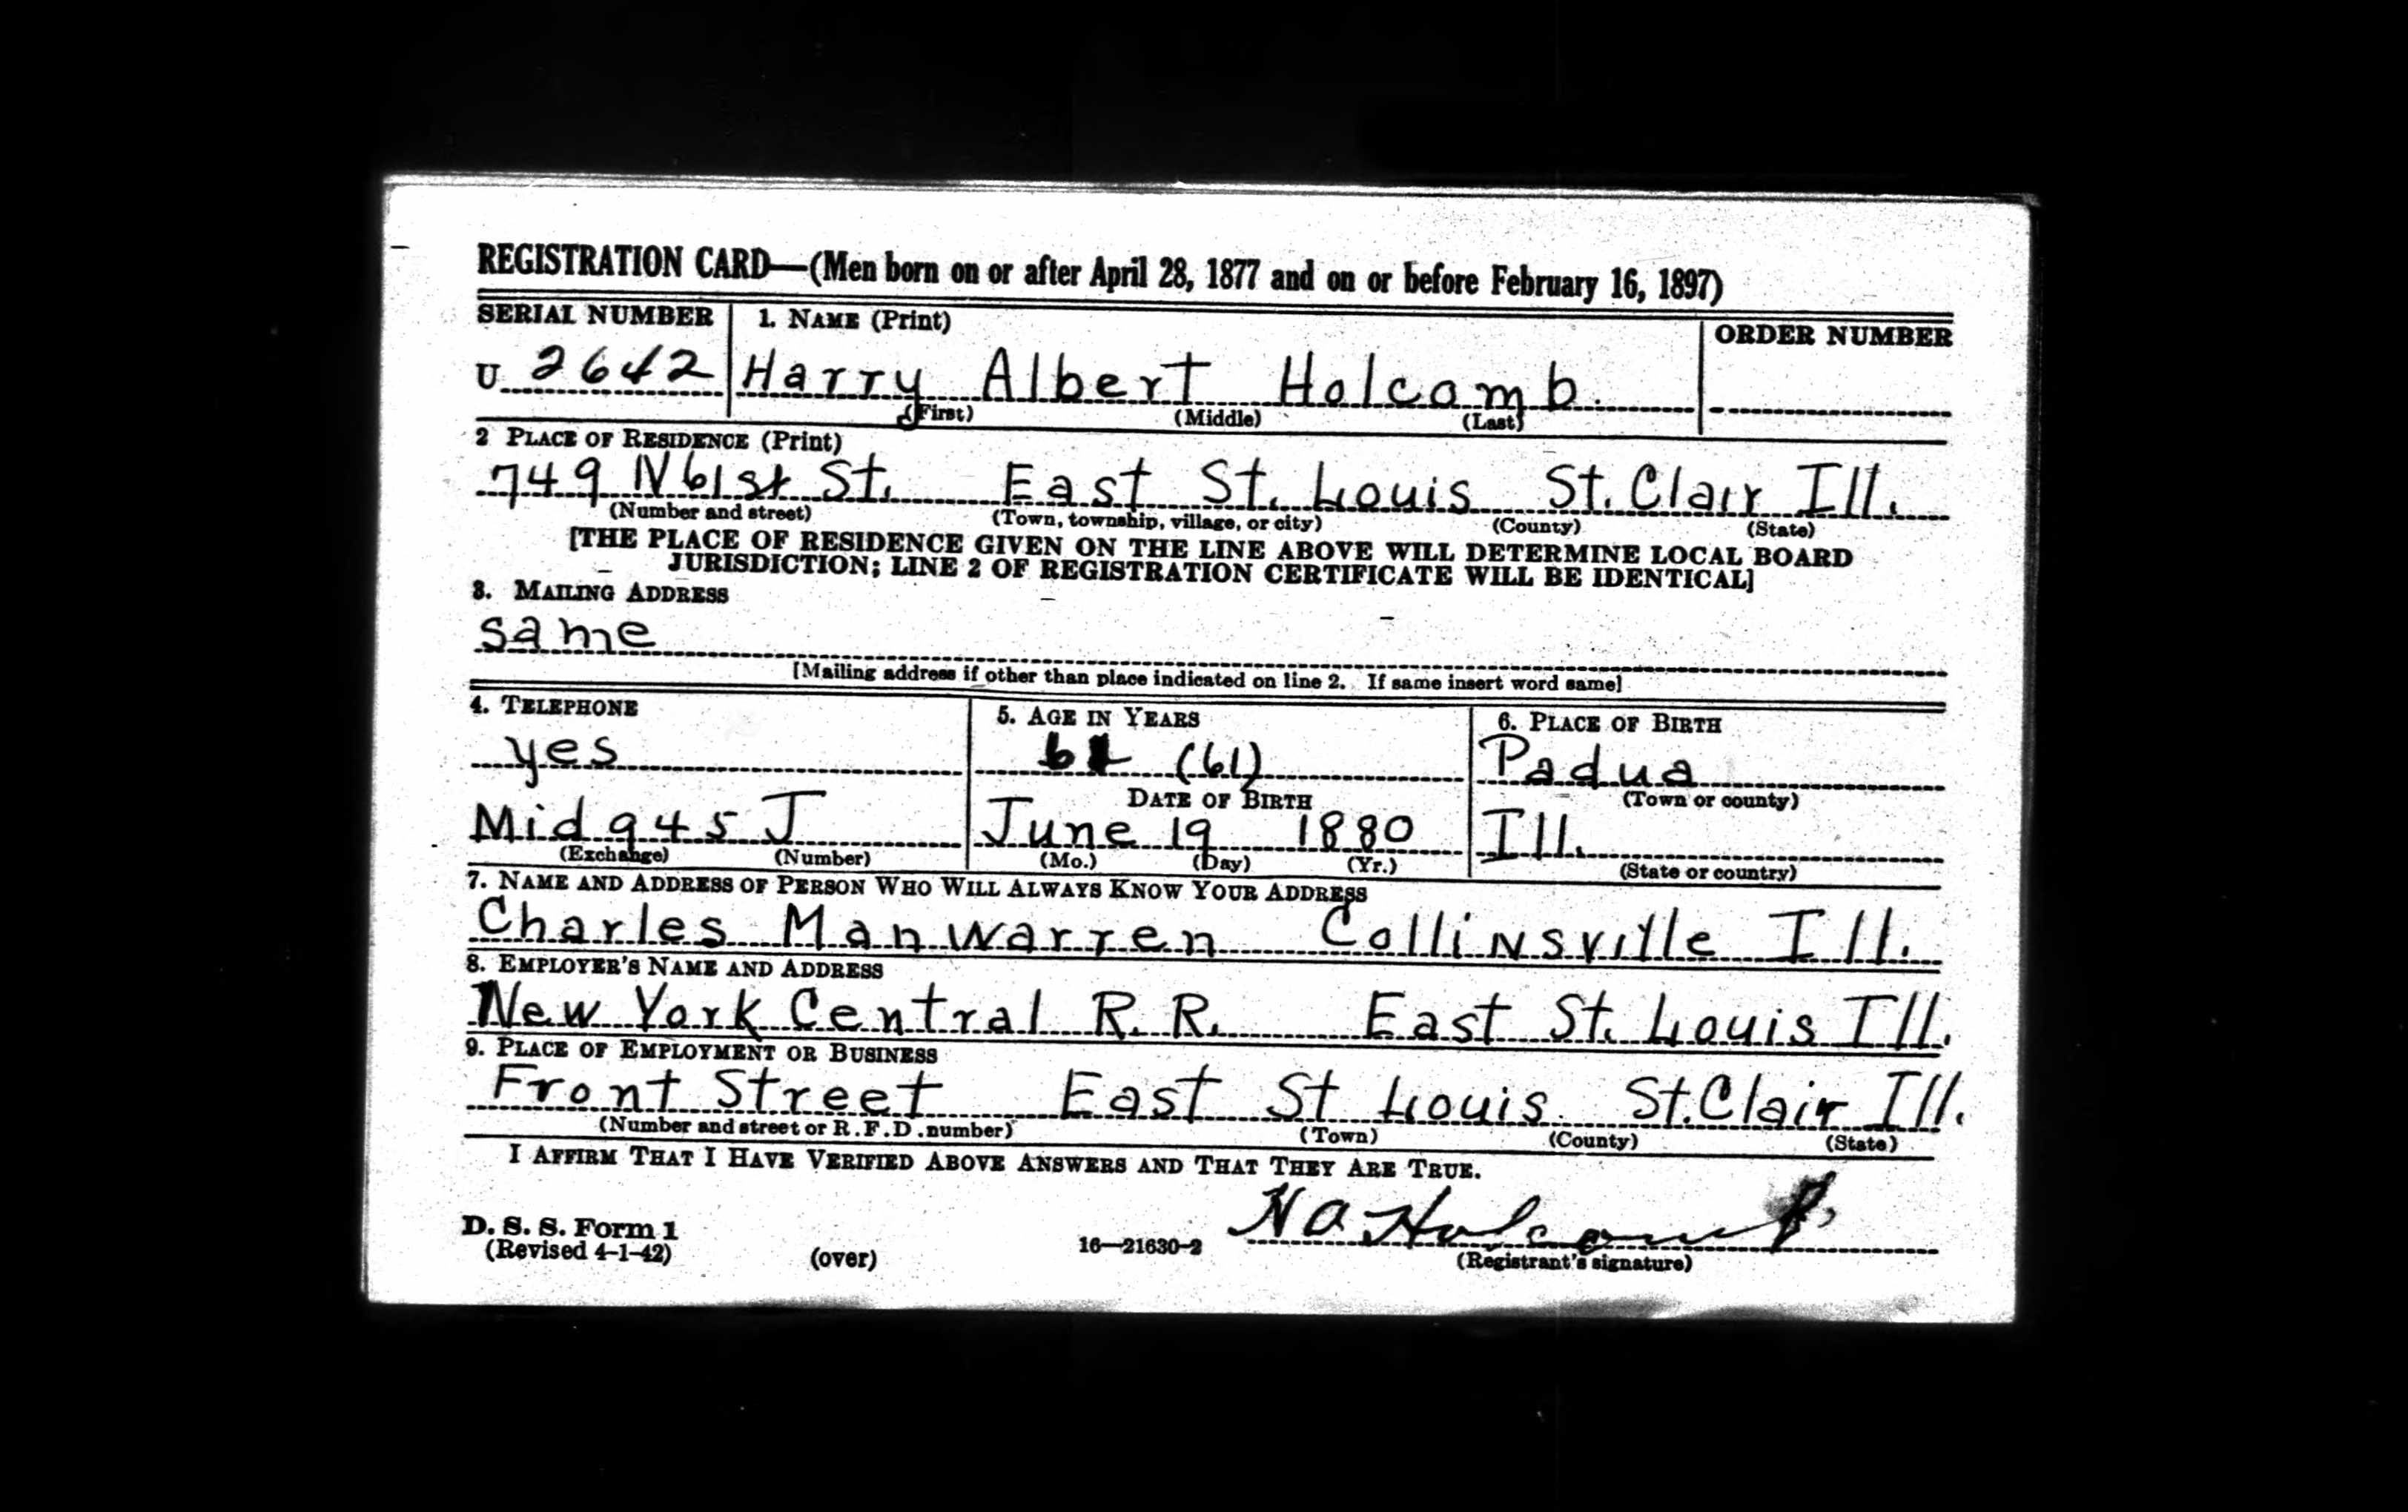 REGISTRATION CARD—(Men born on or after April 28, 1877 and on or before February 16, 1897)
SERIAL NUMBER 1. NAME (Print) ORDER NUMBER
U 2642 Harry Albert Holcomb.
(First) (Middle) (Last)
2 PLACE OF RESIDENCE (Print)
749 N 61st St. East St. Louis St. Clair Ill.
(Number and street) (Town, township, village, or city) (County) (State)
[THE PLACE OF RESIDENCE GIVEN ON THE LINE ABOVE WILL DETERMINE LOCAL BOARD
JURISDICTION; LINE 2 OF REGISTRATION CERTIFICATE WILL BE IDENTICAL]
3. MAILING ADDRESS
same
[Mailing address if other than place indicated on line 2. If same insert word same]
4. TELEPHONE 5. AGE IN YEARS 6. PLACE OF BIRTH
yes (61) Padua
DATE OF BIRTH (Town or county)
Mid 945 J June 19 1880 Ill.
(Exchange) (Number) (Mo.) (Day) (Yr.) (State or country)
7. NAME AND ADDRESS OF PERSON WHO WILL ALWAYS KNOW YOUR ADDRESS
Charles Manwarren Collinsville Ill.
8. EMPLOYER'S NAME AND ADDRESS
New York Central R. R. East St. Louis Ill.
9. PLACE OF EMPLOYMENT OR BUSINESS
Front Street East St Louis St. Clair Ill.
(Number and street or R.F.D. number) (Town) (County) (State)
I AFFIRM THAT I HAVE VERIFIED ABOVE ANSWERS AND THAT THEY ARE TRUE.
H A Holcomb
D. S. S. Form 1
(Revised 4-1-42) (over) 16—21630-2 (Registrant's signature)